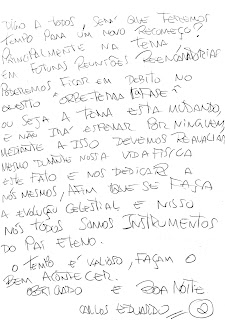 DIGO A TODOS, SERÁ QUE TEREMOS
TEMPO PARA UM NOVO RECOMEÇO?
PRINCIPALMENTE NA TERRA
EM FUTURAS REUNIÕES REENCARNATÓRIAS
PODEREMOS FICAR EM DÉBITO NO
QUESITO "ORBE TERRA FASE"
OU SEJA A TERRA ESTÁ MUDANDO,
E NÃO IRÁ ESPERAR POR NINGUÉM,
MEDIANTE A ISSO DEVEMOS REAVALIAR
MESMO DURANTE NOSSA VIDA FÍSICA
ESTE FATO E NOS DEDICAR A
NÓS MESMOS, AFIM QUE SE FAÇA
A EVOLUÇÃO CELESTIAL E NISSO
NÓS TODOS SOMOS INSTRUMENTOS
DO PAI ETERNO.
O TEMPO É VALIOSO, FAÇAM O
BEM ACONTECER.
OBRIGADO E BOA NOITE
CARLOS EDUARDO